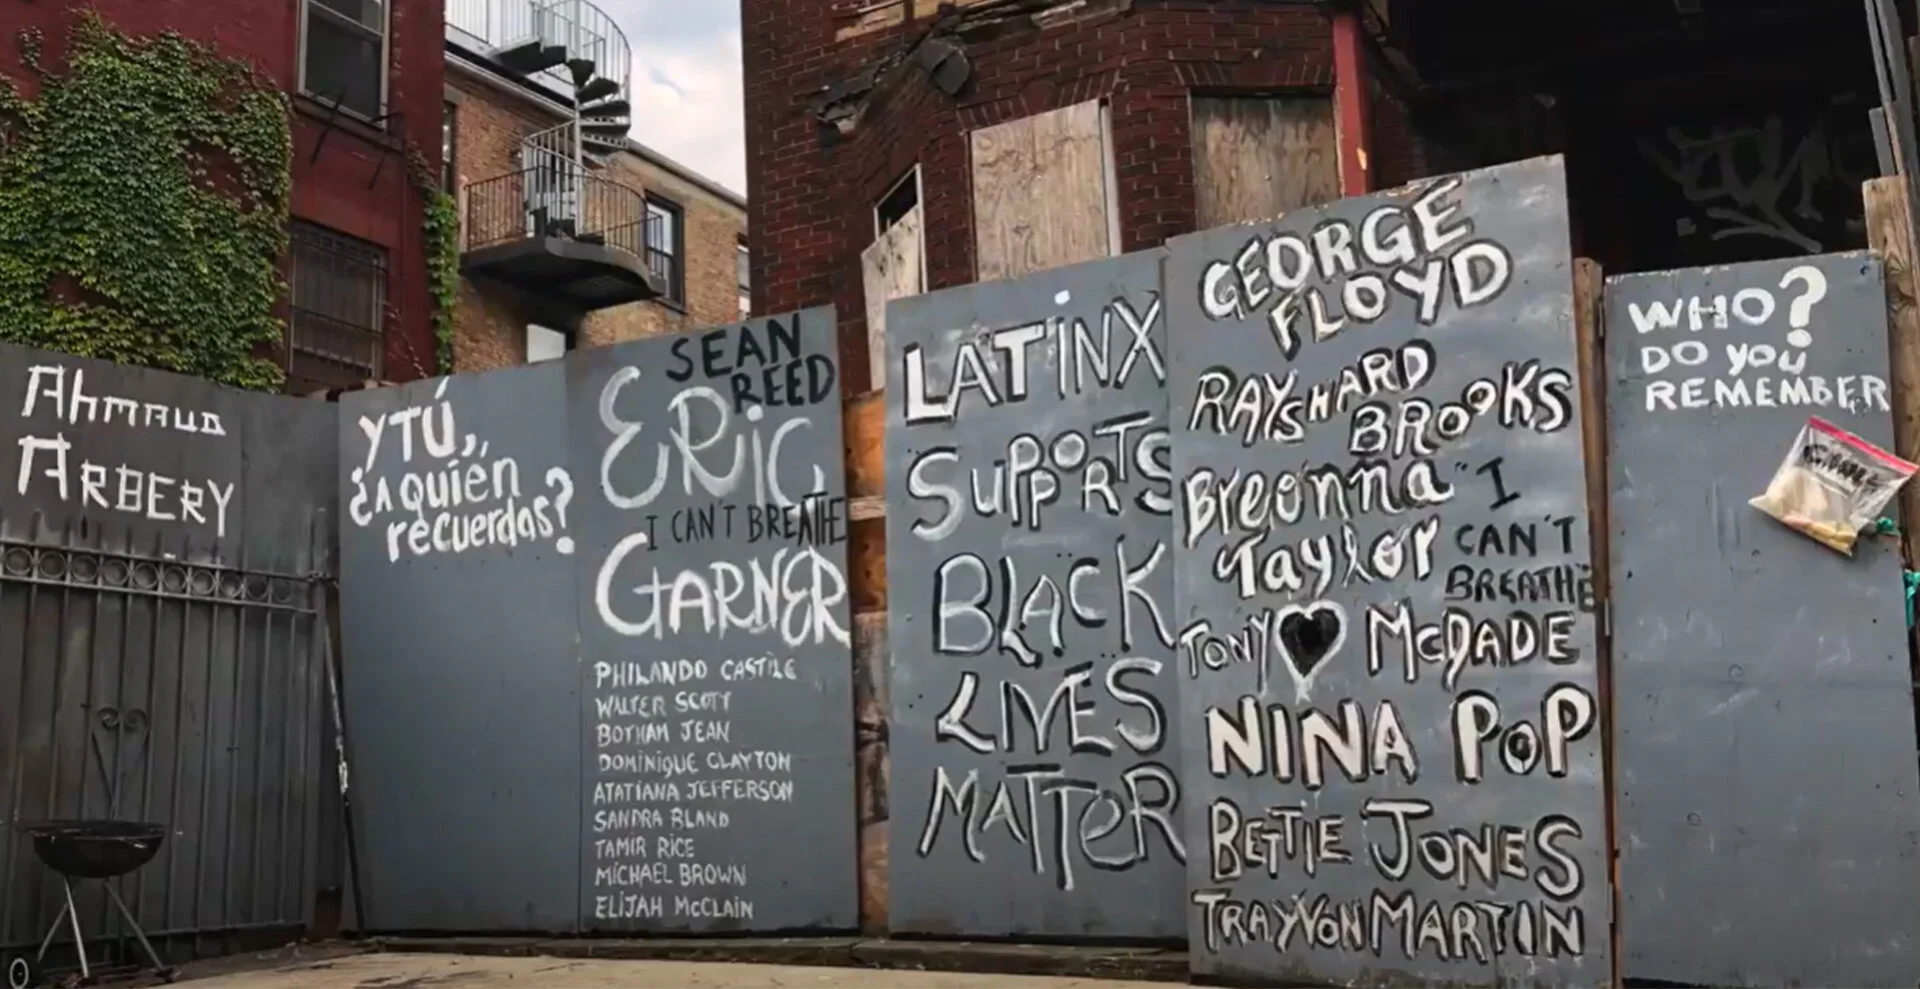 AHMAUD
ARBERY
Y TÚ,
¿A quién
recuerdas?
SEAN
REED
ERIC
I CAN'T BREATHE
GARNER
PHILANDO CASTILE
WALTER SCOTT
BOTHAM JEAN
DOMINIQUE CLAYTON
ATATIANA JEFFERSON
SANDRA BLAND
TAMIR RICE
MICHAEL BROWN
ELIJAH McCLAIN
LATINX
SUPPORTS
BLACK
LIVES
MATTER
GEORGE
FLOYD
RAYSHARD
BROOKS
Breonna
Taylor
"I
CAN'T
BREATHE
TONY McDADE
NINA POP
BETTIE JONES
TRAYVON MARTIN
WHO?
DO YOU
REMEMBER